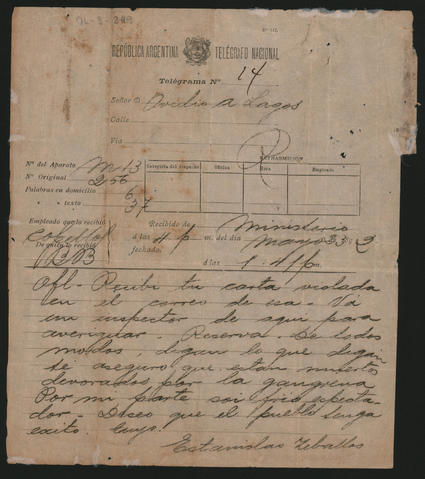 OL-3-249
REPÚBLICA ARGENTINA TELÉGRAFO NACIONAL
Telégrama Nº 14
Señor D. Ovidio A Lagos
Calle
Via
RETRASMISIÓN
Nº del Aparato M 13
Categoria del despacho Oficina Hora Empleado
Nº Original 256
Palabras en domicilio 6
» » texto 37
Empleado que lo recibió
De quien lo recibió BB
Recibido de Ministerio
á las 4 p m. del dia Marzo 23
fechado. á las 1.41 p m.
Ofl- Recibi tu carta violada
en el correo de esa - Vá
un inspector de aqui para
averiguar - Reserva - De todos
modos digan lo que digan
te aseguro que estan muertos
devorados por la gangrena
Por mi parte soi frio especta-
dor - Deseo que el pueblo tenga
exito tuyo.
Estanislao Zeballos